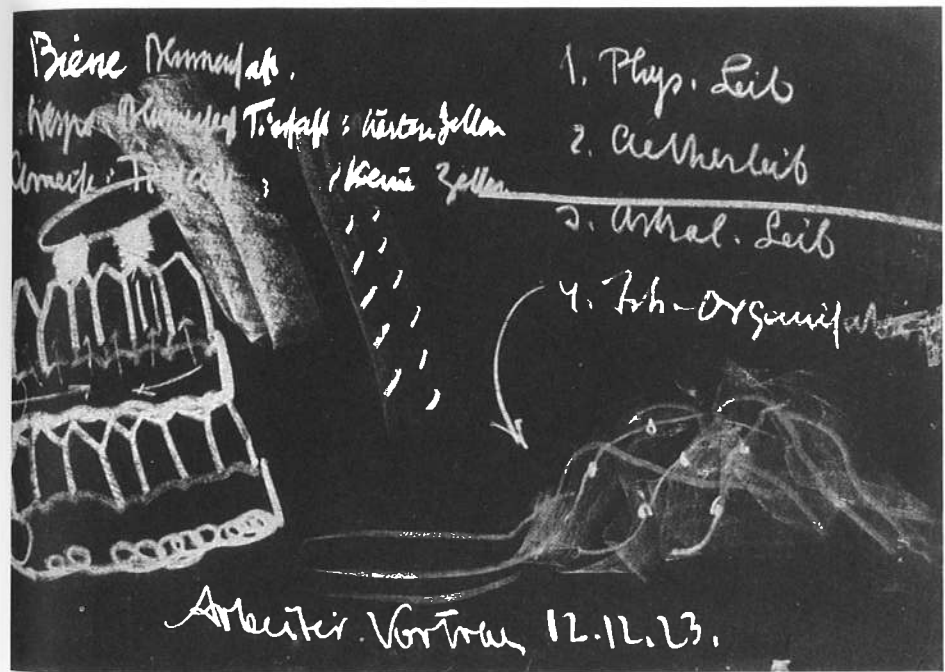 Biene Blumensaft.
Wespe Blumensaft Tiersaft : Wüste Zellen
Ameise : Tiersaft : Keine Zellen
1. Phys. Leib
2. Aetherleib
3. Astral. Leib
4. Ich-Organisation
Arbeiter. Vortrag 12.12.23.